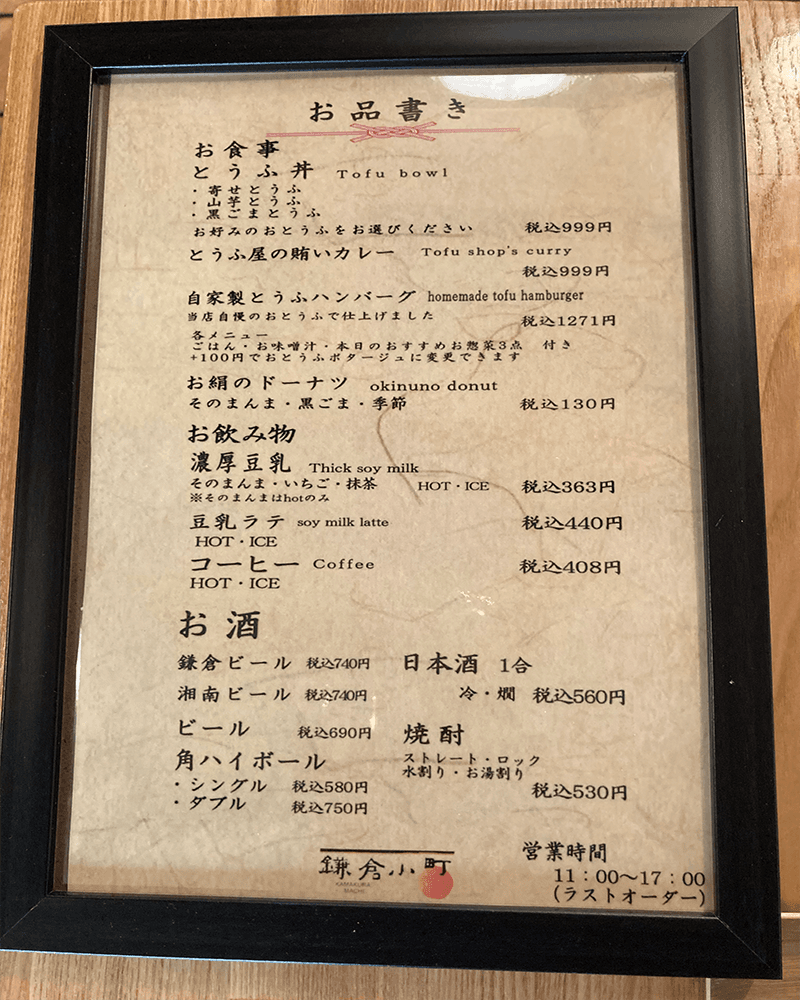 お品書き
お食事
とうふ丼 Tofu bowl
・寄せとうふ
・山芋とうふ
・黒ごまとうふ
お好みのおとうふをお選びください 税込999円
とうふ屋の賄いカレー Tofu shop's curry
税込999円
自家製とうふハンバーグ homemade tofu hamburger
当店自慢のおとうふで仕上げました 税込1271円
各メニュー
ごはん・お味噌汁・本日のおすすめお惣菜3点 付き
+100円でおとうふポタージュに変更できます
お絹のドーナツ okinuno donut
そのまんま・黒ごま・季節 税込130円
お飲み物
濃厚豆乳 Thick soy milk
そのまんま・いちご・抹茶 HOT・ICE 税込363円
※そのまんまはhotのみ
豆乳ラテ soy milk latte 税込440円
HOT・ICE
コーヒー Coffee 税込408円
HOT・ICE
お酒
鎌倉ビール 税込740円
湘南ビール 税込740円
ビール 税込690円
角ハイボール
・シングル 税込580円
・ダブル 税込750円
日本酒 1合
冷・燗 税込560円
焼酎
ストレート・ロック
水割り・お湯割り
税込530円
鎌倉小町
KAMAKURA
MACHI
営業時間
11:00〜17:00
(ラストオーダー)